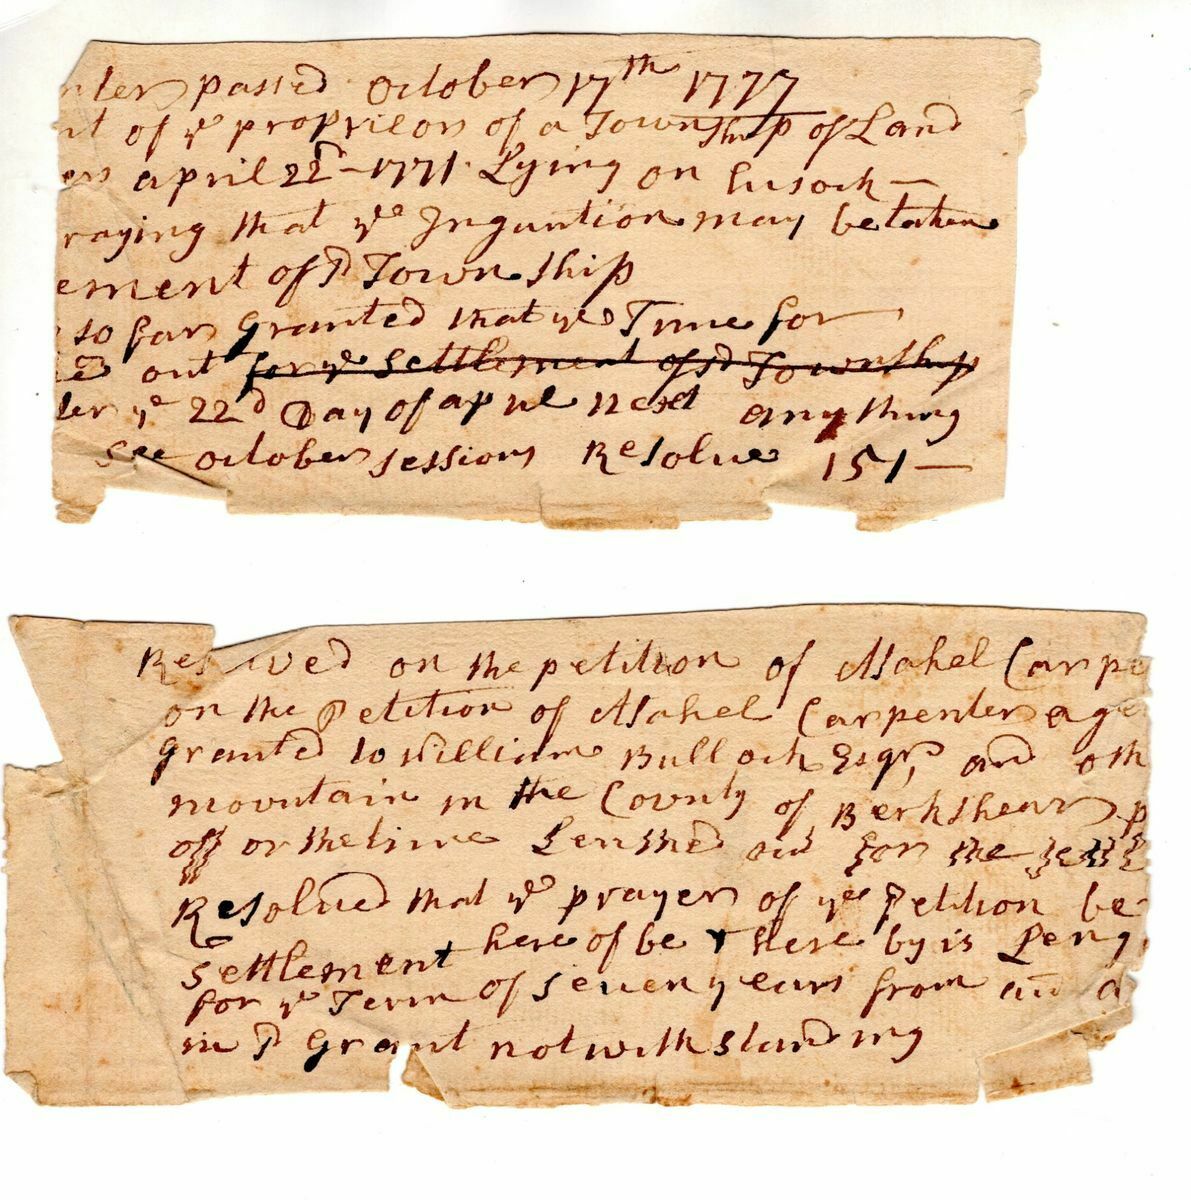 nter passed October 17th 1777
nt of ye proprieors of a Township of Land
ers april 22d - 1771 Lying on husoch —
raying that ye Injuntion may be taken
ement of sd Township
so far granted that ye Time for
ed out for ye Settlement of sd Township
ter ye 22d Day of aprile next anything
See october sessions Resolve 151 —
Resolved on the petition of Asahel Carpe
on the Petition of Asahel Carpenter age
granted to William Bulloch Esqr, and oth
mountain in the County of Berkshear p
off or the time Lenthed out for the settl
Resolved that ye prayer of ye Petition be
Settlement here of be & here by is Leng
for ye Term of Seven years from and a
in sd Grant notwithstanding